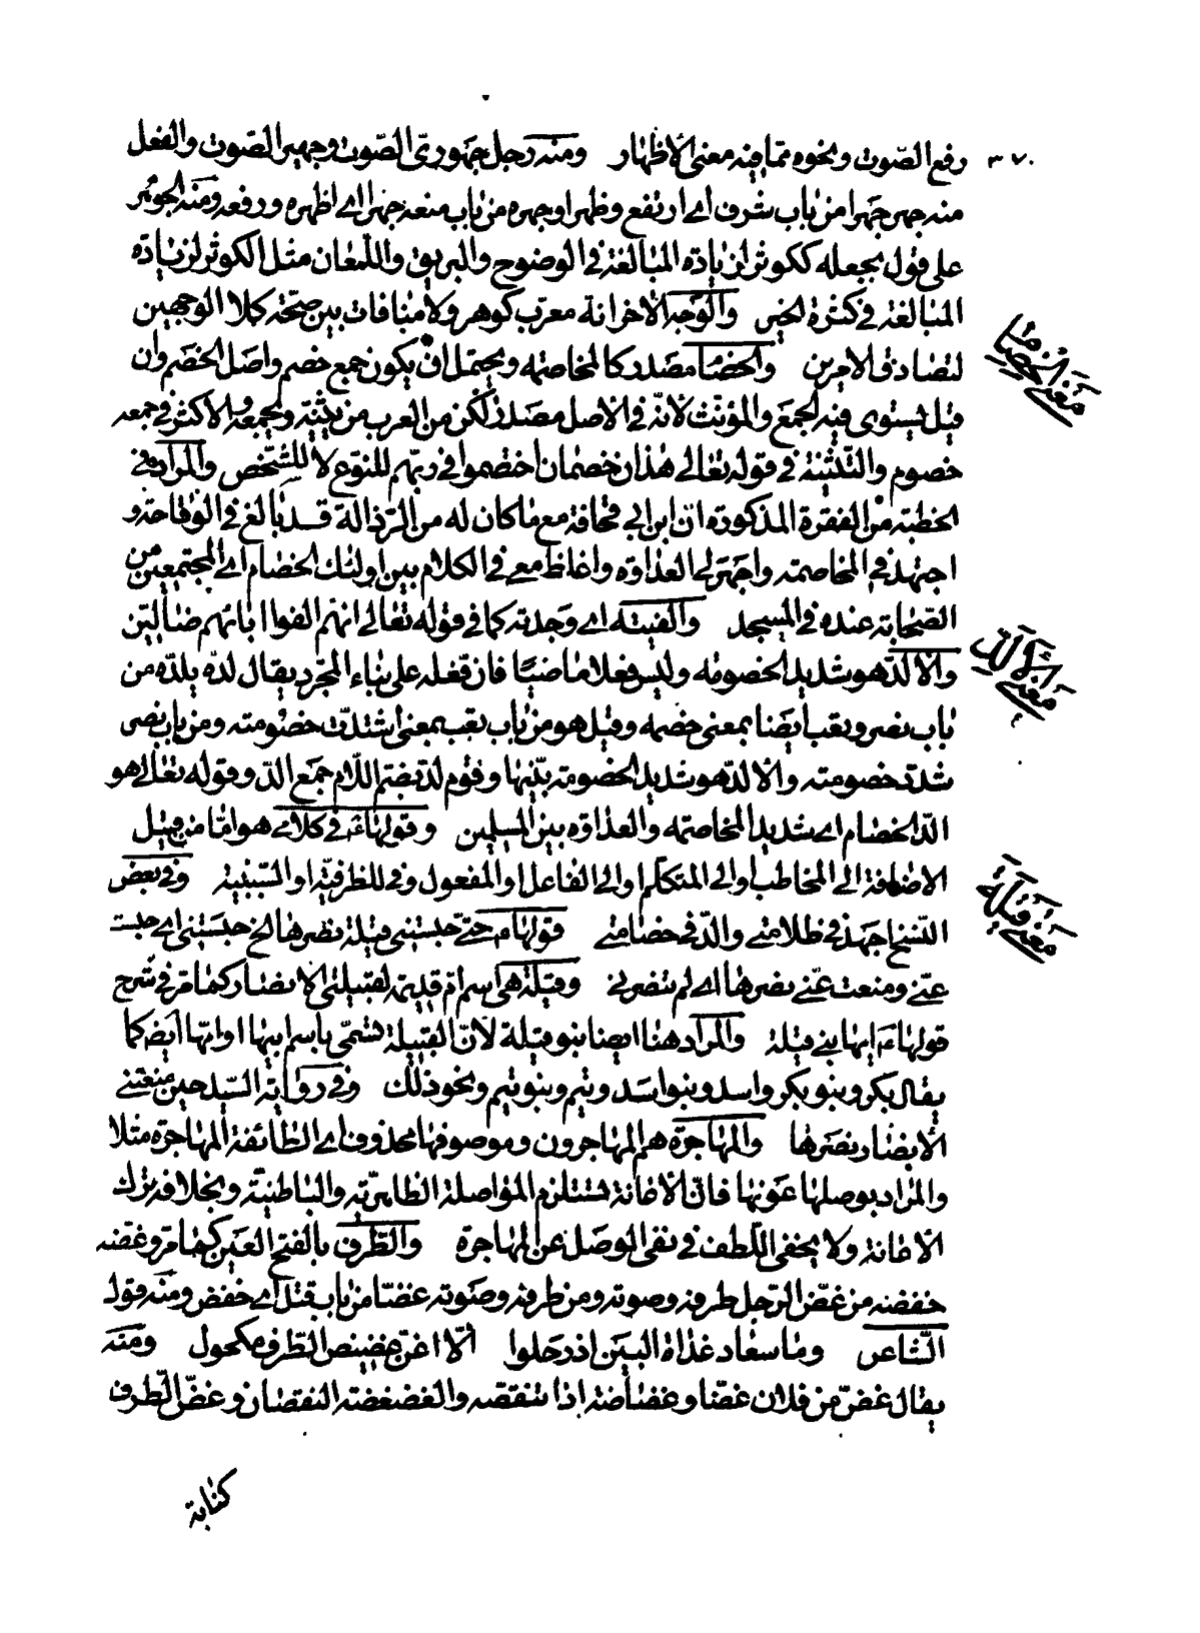 ٣٧٠
رفع الصّوت ونحوه ممّا فيه معنى الاظهار ومنه رجل جهوريّ الصّوت وجهير الصّوت والفعل
منه جهر جهرا من باب شرف اى ارتفع وظهر او جهره من باب منعه جهرا اى اظهره ورفعه ومنه الجوهر
على قول بجعله ككوثر لزيادة المبالغة فى الوضوح والبريق واللّمعان مثل الكوثر لزيادة
المبالغة فى كثرة الخير والوجه الآخر انه معرب كوهر ولا منافات بين صحّة كلا الوجهين
لتصادق الامرين والخصام مصدر كالمخاصمة ويحتمل ان يكون جمع خصم واصل الخصم وان
قيل يستوى فيه الجمع والمؤنّث لانّه فى الاصل مصدر لكن من العرب من يثنّيه ويجمعه والاكثر فى جمعه
خصوم والتّثنية فى قوله تعالى هذان خصمان اختصموا فى ربّهم للنوع لا للشّخص والمراد فى
الخطبة من الفقرة المذكورة ان ابن ابى قحافة مع ما كان له من الرّذالة قد بالغ فى الوقاحة و
اجتهد فى المخاصمة واجهر لى العداوة واغلظ معى فى الكلام بين اولئك الخصام اى المجتمعين من
الصّحابة عنده فى المسجد والفيته اى وجدته كما فى قوله تعالى انهم الفوا اباءهم ضالّين
والالدّ هو شديد الخصومة وليس فعلا ماضيّا فان فعله على بناء المجرّد يقال لدّه يلدّه من
باب نصر وتعب ايضا بمعنى خصمه وقيل هو من باب تعب بمعنى اشتدّت خصومته ومن باب نصر
شدّت خصومته والالدّ هو شديد الخصومة بيّنها وقوم لدّ بضمّ اللّام جمع الدّ وقوله تعالى هو
الدّ الخصام اى شديد المخاصمة والعداوة بين المسلمين وقولها ع فى كلامى هو امّا من قبيل
الاضافة الى المخاطب او الى المتكلّم او الى الفاعل او المفعول وفى للظرفيّة او السّببيّة وفى بعض
النّسخ اجهد فى ظلامتى والدّ فى خصامتى قولها ع حتّى حبستنى قيلة نصرها الخ حبستنى اى حبست
عنّى ومنعت عنّى نصرها اى لم تنصرنى وقيلة هى اسم ام قديمة لقبيلتى الانصار كما مرّ فى شرح
قولها ع ايها بنى قيلة والمراد هنا ايضا بنو قيلة لانّ القبيلة تسمّى باسم ابيها او امّها ايضا كما
يقال بكر وبنو بكر واسد وبنو اسد وتيم وبنو تيم ونحو ذلك وفى رواية السّيد حين منعتنى
الانصار نصرها والمهاجرة هم المهاجرون وموصوفها محذوف اى الطّائفة المهاجرة مثلا
والمراد بوصلها عونها فانّ الاعانة تستلزم المواصلة الظاهريّة والباطنيّة وبخلافه ترك
الاعانة ولا يخفى اللّطف فى نفى الوصل عن المهاجرة والطّرف بالفتح العين كما مرّ وغضّه
خفضه من غضّ الرّجل طرفه وصوته ومن طرفه وصوته غضّا من باب قتل اى خفض ومنه قول
الشّاعر وما سعاد غداة البين اذ رحلوا الّا اغنّ غضيض الطّرف مكحول ومنه
يقال غضّ من فلان غضّا وغضاضة اذا تنقّصه والغضغضة النقصان وغضّ الطّرف
كناية
معنى الخصام
معنى الالدّ
معنى قيلة